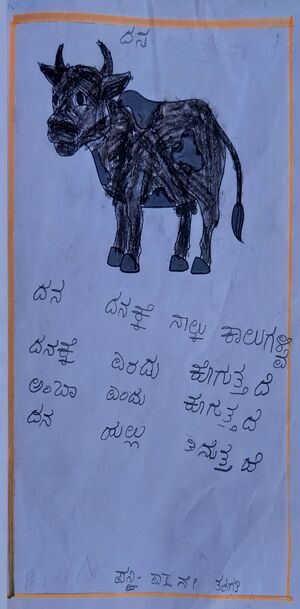 ದನ
ದನ ದನಕ್ಕೆ ನಾಲ್ಕು ಕಾಲುಗಳಿವೆ
ದನಕ್ಕೆ ಎರಡು ಕೊಗುತ್ತದೆ
ಅಂಬಾ ಎಂದು ಕೂಗುತ್ತದೆ
ದನ ಹುಲ್ಲು ತಿನುತ್ತದೆ
ತರಗತಿ